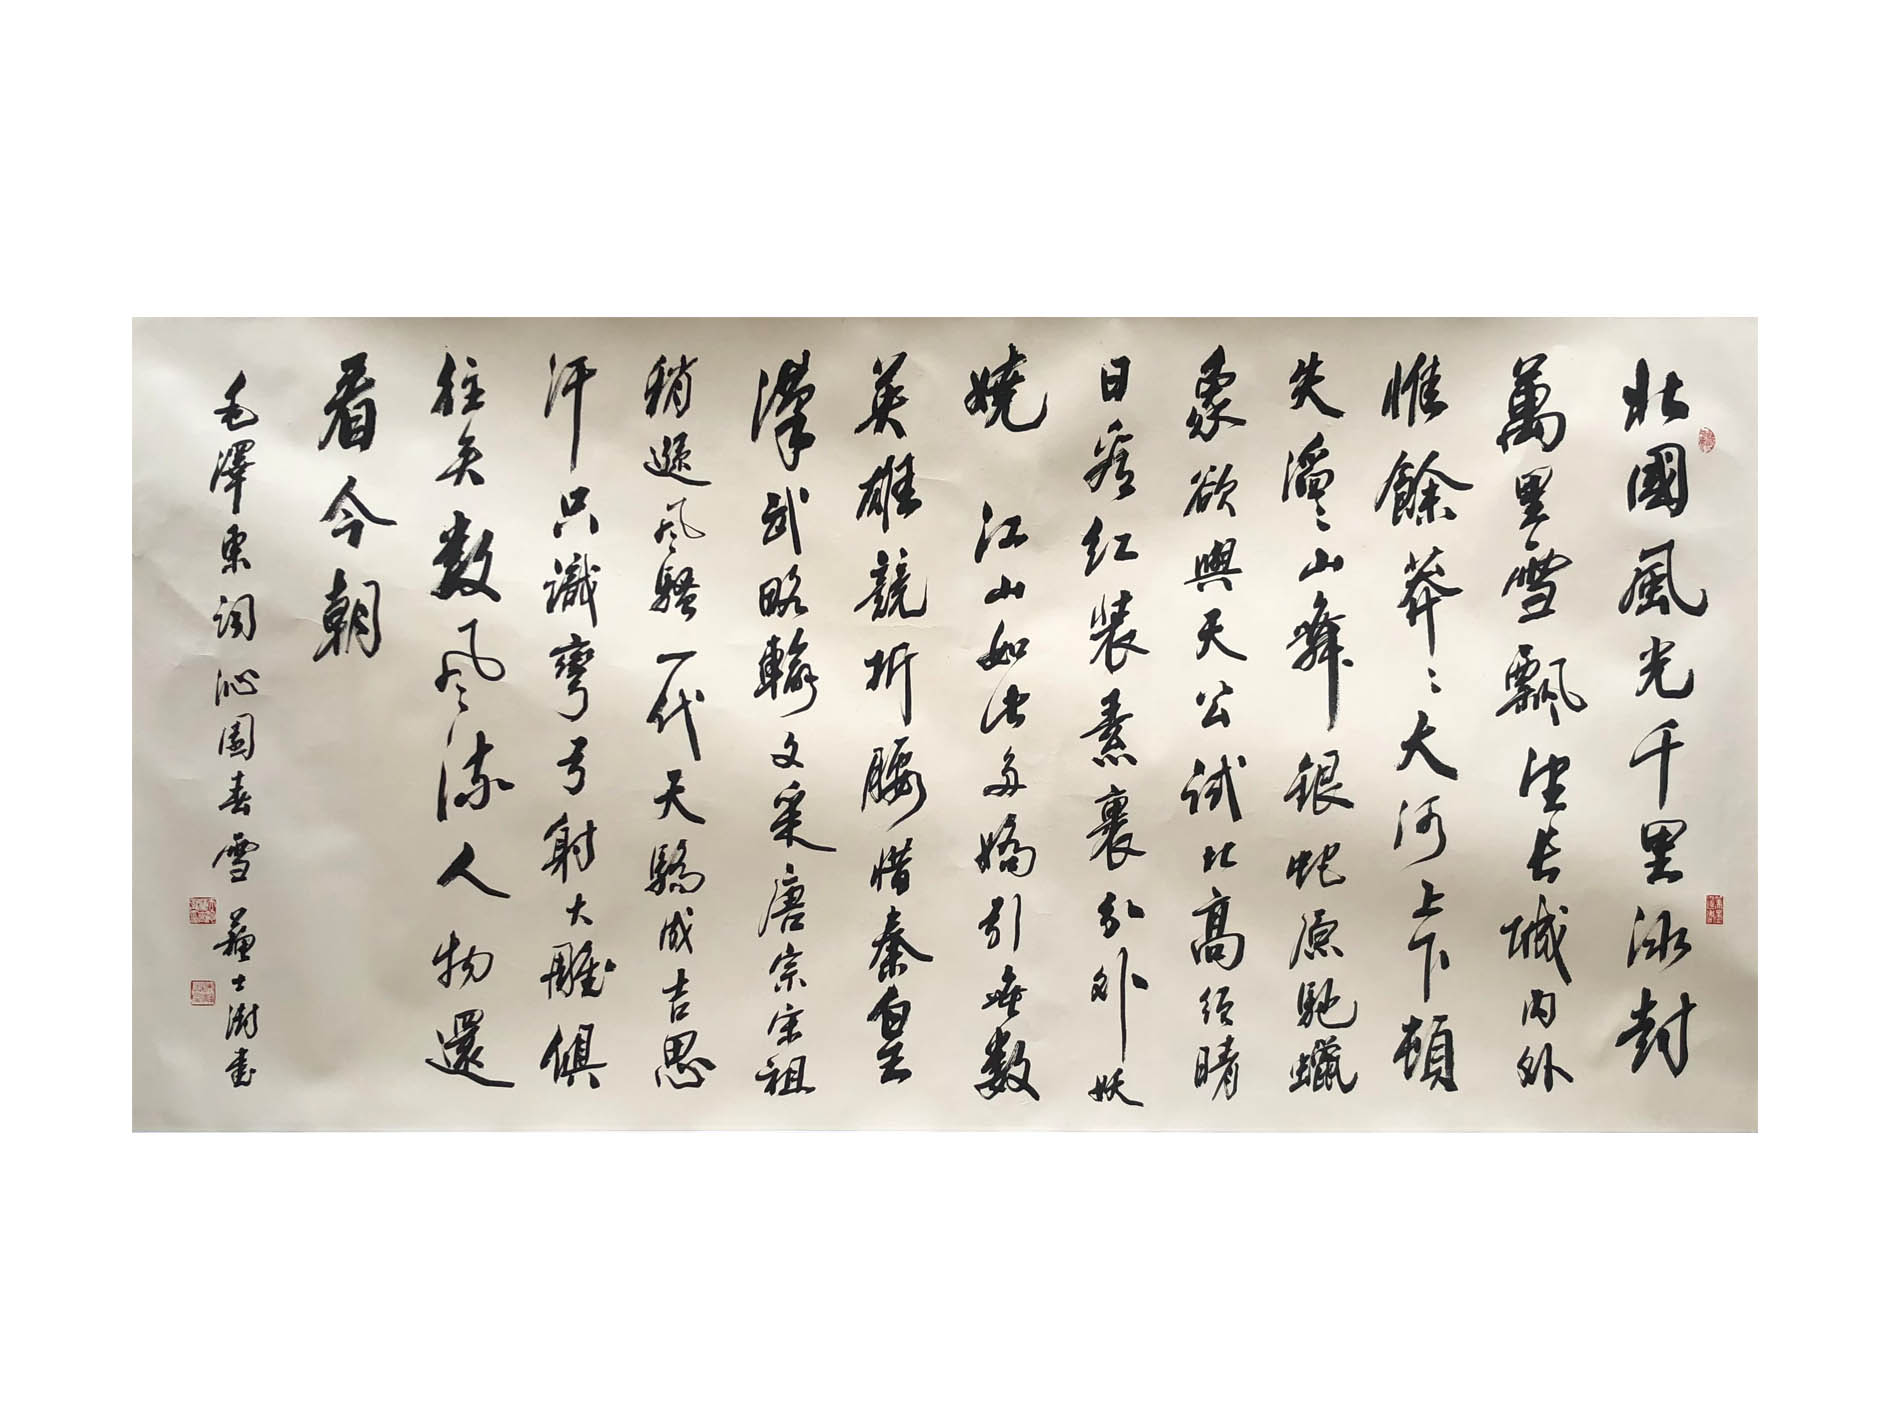 北國風光千里冰封
萬里雪飄望長城内外
惟餘莽〻大河上下頓
失滔〻山舞銀蛇原馳蠟
象欲與天公試比高須晴
日看紅裝素裹分外妖
嬈 江山如此多嬌引無數
英雄競折腰惜秦皇
漢武略輸文采唐宗宋祖
稍遜风騷一代天驕成吉思
汗只識彎弓射大雕俱
往矣数风流人物還
看今朝
毛澤東詞沁園春雪 蘇士澍書